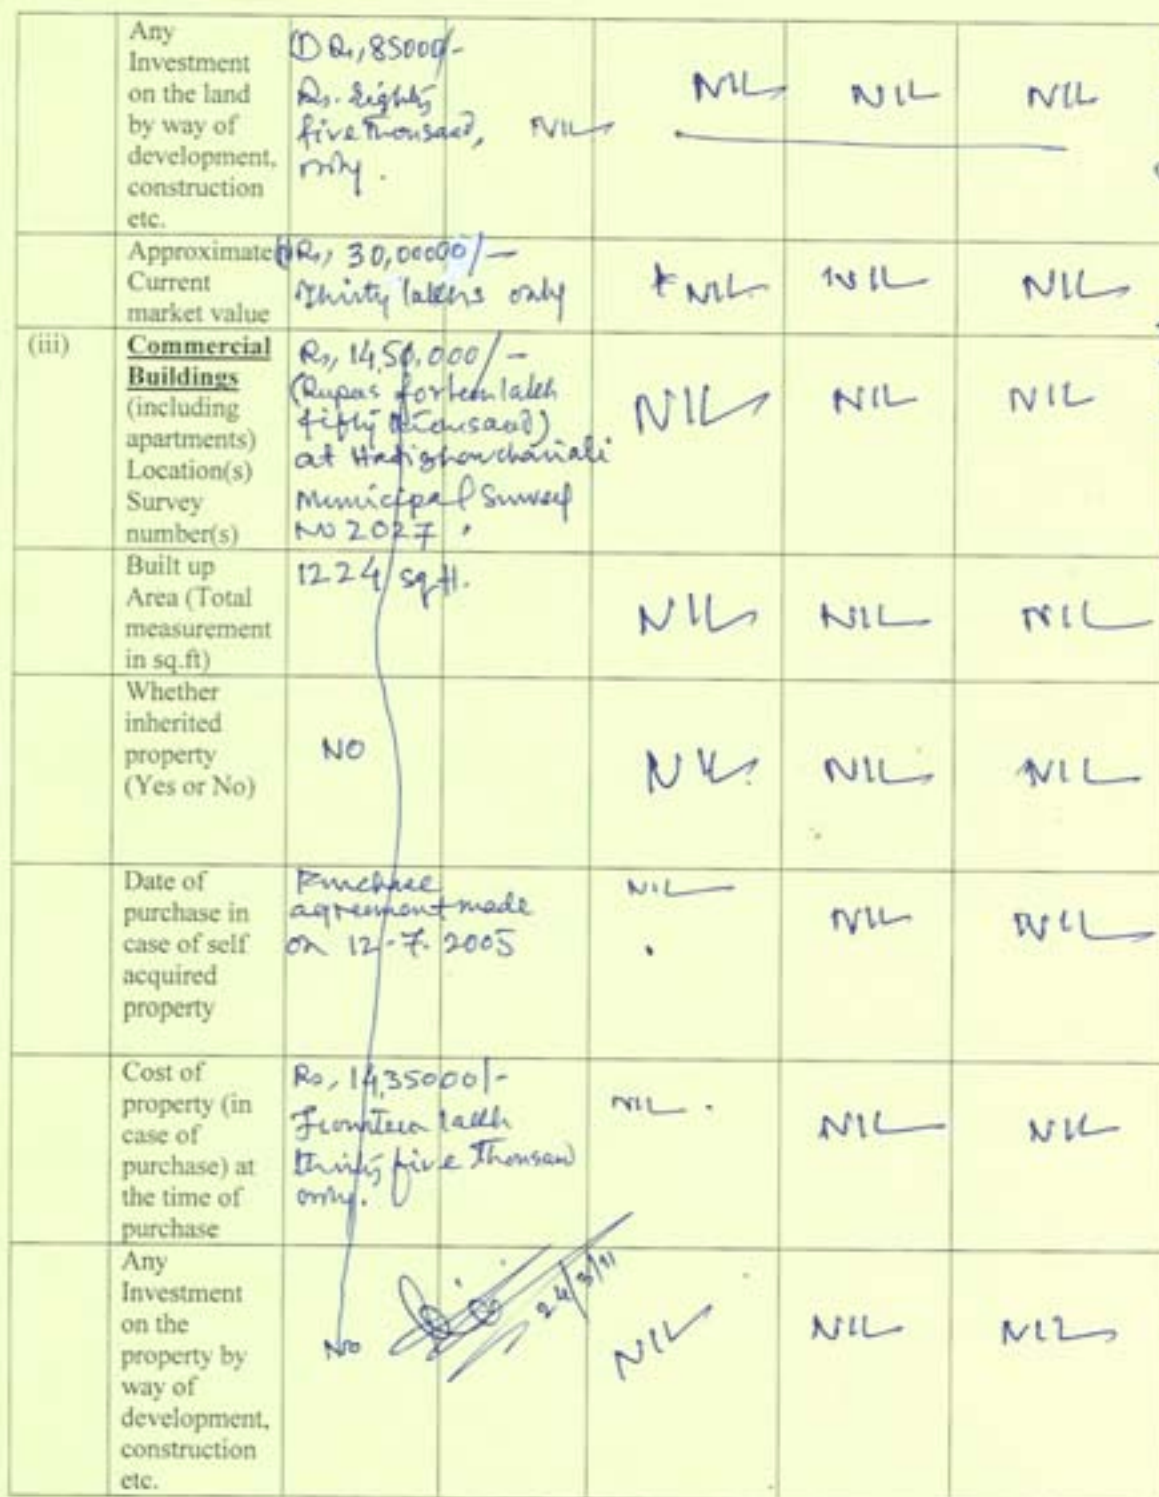 Any
Investment
on the land
by way of
development,
construction
etc.
① Rs, 85000/-
Rs. Eighty
five thousand,
only.
NIL
NIL
NIL
NIL
Approximate
Current
market value
Rs, 30,00000/-
Thirty lakhs only
NIL
NIL
NIL
(iii)
Commercial
Buildings
(including
apartments)
Location(s)
Survey
number(s)
Rs, 14,50,000/-
(Rupas forteen lakh
fifty thousand)
at
Municipal Survey
No 2027
NIL
NIL
NIL
Built up
Area (Total
measurement
in sq.ft)
1224 sq ft.
NIL
NIL
NIL
Whether
inherited
property
(Yes or No)
NO
NIL
NIL
NIL
Date of
purchase in
case of self
acquired
property
Purchase
agreement made
on 12-7-2005
NIL
NIL
NIL
Cost of
property (in
case of
purchase) at
the time of
purchase
Rs, 14,35000/-
Fourteen lakh
thirty five Thousand
only.
NIL.
NIL
NIL
Any
Investment
on the
property by
way of
development,
construction
etc.
No
24/3/11
NIL
NIL
NIL